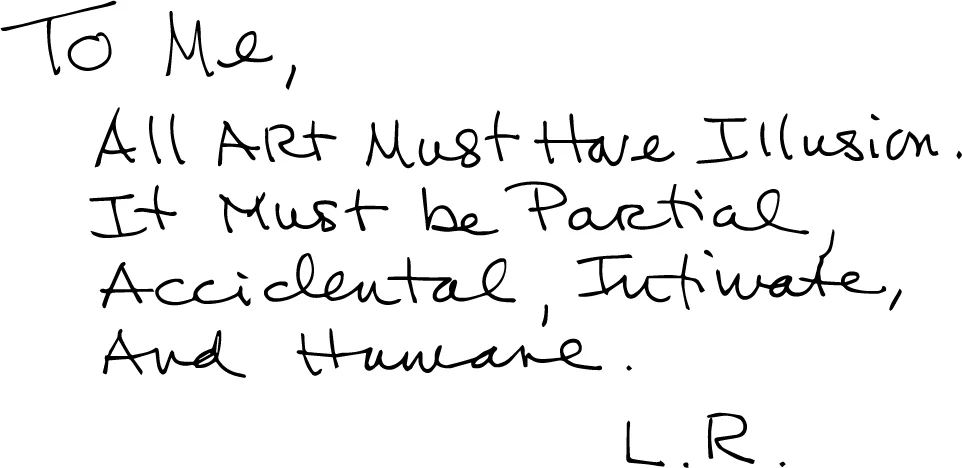 To Me,
All Art Must Have Illusion.
It Must be Partial,
Accidental, Intimate,
And Humane.
L.R.